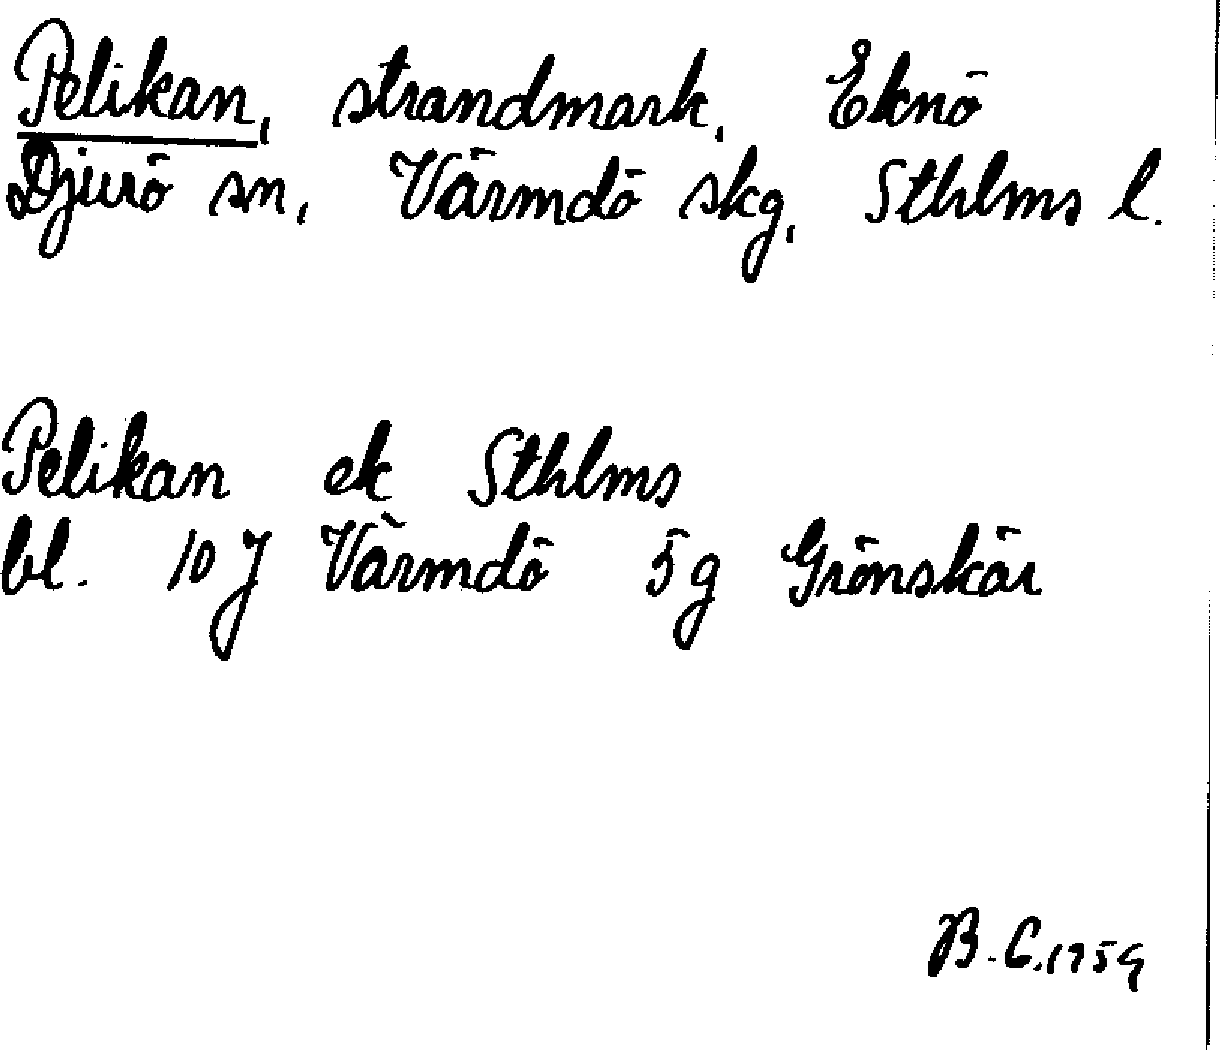 Pelikan, strandmark, Eknö
Djurö sn, Värmdö skg, Sthlms l.
Pelikan ek Sthlms
bl. 10 J Värmdö 5g Grönskär
B.C. 1959